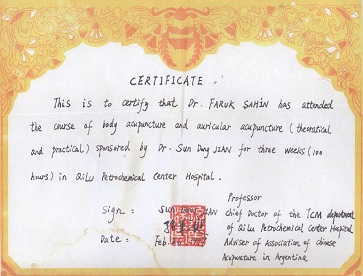 CERTIFICATE
This is to certify that Dr. FARUK SAHIN has attended
the course of body acupuncture and auricular acupuncture (theoretical
and practical) sponsered by Dr. Sun Dong JIAN for three weeks (100
hours) in QiLu Petrochemical Center Hospital.
Professor
Sign : Sun JIAN chief Doctor of the TCM department
of QiLu Petrochemical Center Hospital
Date : Feb. Adviser of Association of chinese
Acupuncture in Argentina